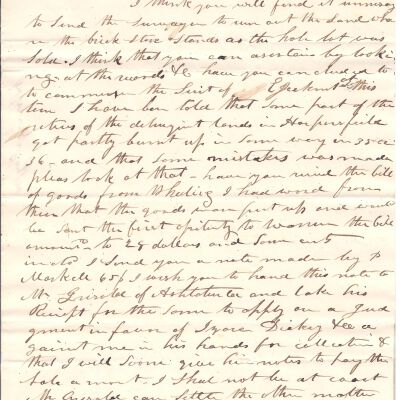 I think you will find it unnecessary
to Send the Surveyor to run out the Land whare
on the brick Store Stands as the hole lot was
Sold. I think that you can asertain by lookin
ng at the records &c have you concluded to
to commence the Suit of Ejectment this
term I have ben told that Some part of the
returns of the delinquent lands in Harpersfield
got partly burnt up in some way in 35 or
36 - and that Some mistakes was made
pleas look at that - have you recived the bill
of goods from Wheeling I had word from
them that the goods was put up and would
be Sent the first opertunity to Warren the bill
amount to 28 dollars and Some cents
I Send you a note made by P
Markell 65$ I wish you to hand this note to
Mr Griswold of Ashtabula and take his
Reciept for the Same to apply on a Jud
gment in favor of Dickey &c a
gainst me in his hands for collection &
that I will Soon give him notes to pay the
hole amont. I Shal not be at coart
Mr Griswold can Settle the other matter